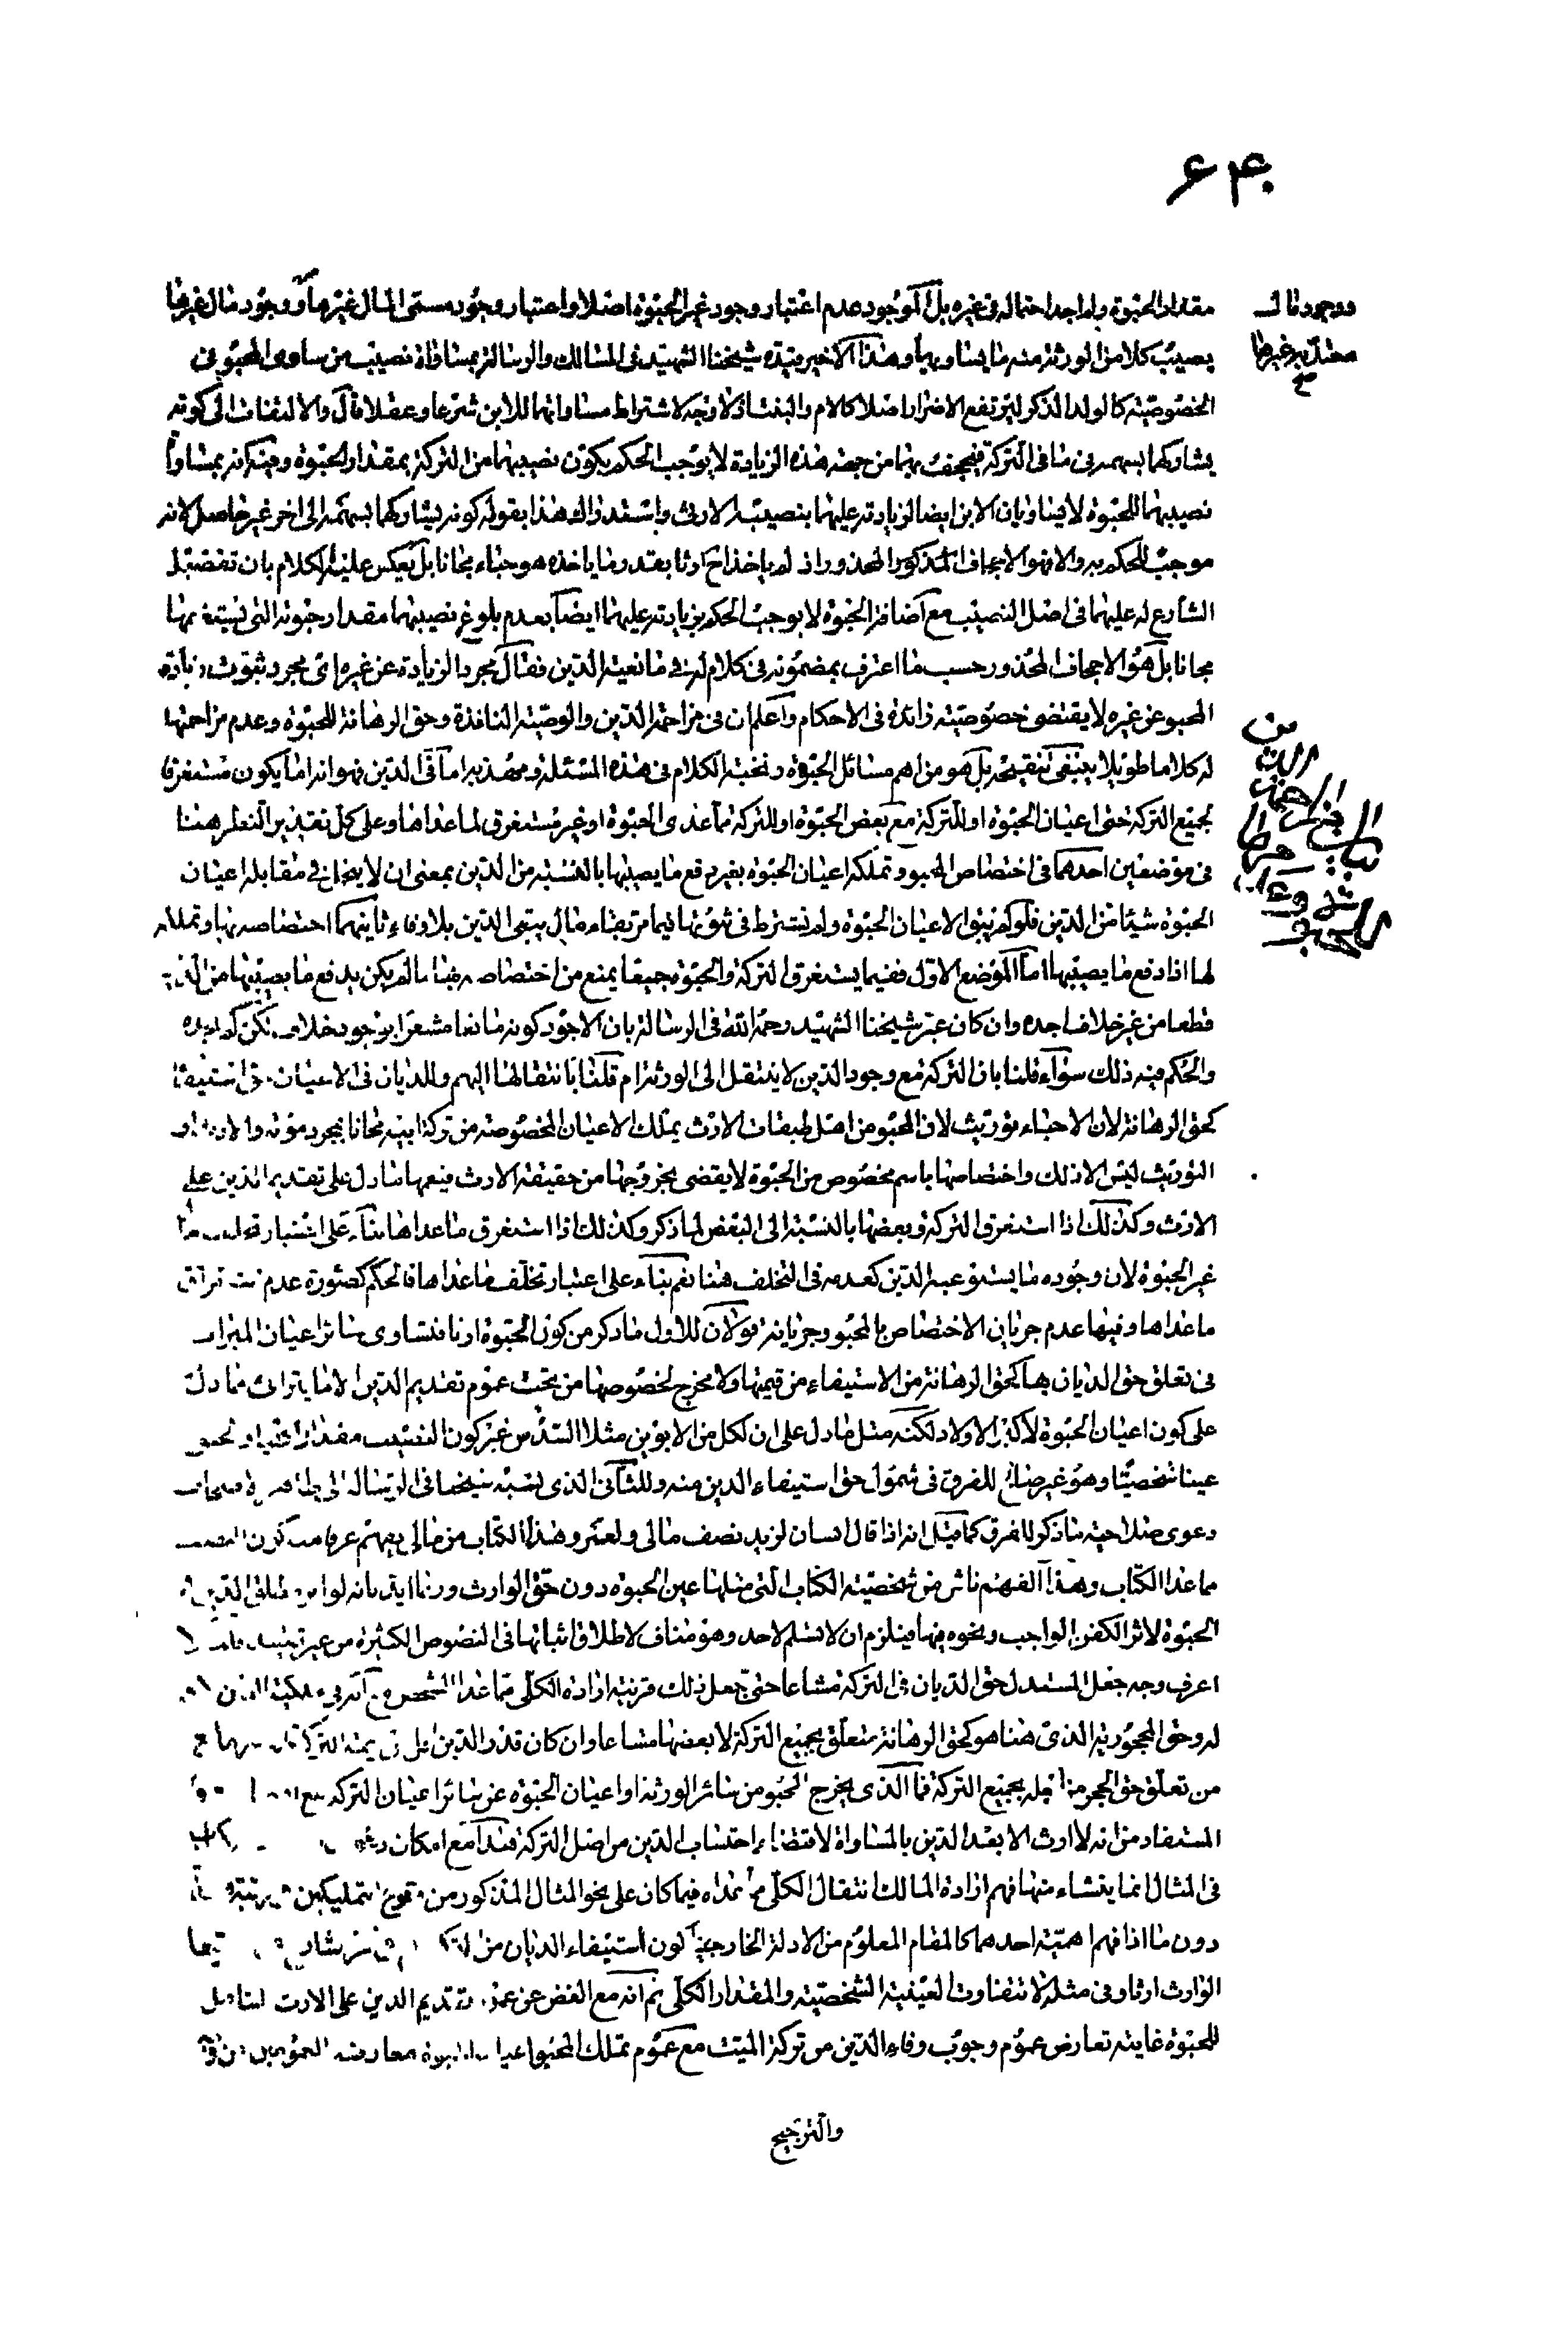 ۶۴۰
مقدار الحبوة ولم اجد احتماله في غيره بل الموجود عدم اعتبار وجود غير الحبوة اصلا واعتبار وجود مسمى المال غيرها ووجود مال غيرها
ووجود مال
معتد به غيرها
صح
يصيب كلا من الورثة منه ما يساويها وهذا الاخير قيده شيخنا الشهيد في المسالك والرسالة بمساواة نصيب من ساوى المحبو في
الخصوصية كالولد الذكر ليرتفع الاضرار اصلا كالام والبنت اذ لا وجه لاشتراط مساواتهما للابن شرعا وعقلا قال والالتفات الى كونه
يشاركهما بسهمه في ما في التركة فيجحف بهما من جهة هذه الزيادة لا يوجب الحكم بكون نصيبهما من التركة بمقدار الحبوة وفيه انه بمساواة
نصيبهما للحبوة لا يساويان الابن ايضا لزيادته عليهما بنصيبه الارثي واستدراك هذا بقوله كونه يشاركهما بسهمه الى اخر غير حاصل لانه
موجب للحكم به والا فهو الاجحاف المذكور المحذور اذ لم ياخذ ح ارثا بقدر ما ياخذه هو حباء مجانا بل يعكس عليه الكلام بان تفضيل
الشارع له عليهما في اصل النصيب مع اضافة الحبوة لا يوجب الحكم بزيادته عليهما ايضا بعدم بلوغ نصيبهما مقدار حبوته التي يستبد بها
مجانا بل هو الاجحاف المحذور حسب ما اعترف بمضمونه في كلام له في مانعية الدين فقال مجرد الزيادة عن غيره اي مجرد ثبوت زيادة
المحبو عن غيره لا يقتضى خصوصية زائدة في الاحكام واعلم ان في مزاحمة الدين والوصية النافذة وحق الرهانة للحبوة وعدم مزاحمتها
له كلاما طويلا ينبغي تنقيحه بل هو من اهم مسائل الحبوة ونخبة الكلام في هذه المسئلة وتهذيبه اما في الدين فهو انه اما يكون مستغرقا
لجميع التركة حتى اعيان الحبوة او للتركة مع بعض الحبوة او للتركة ما عدى الحبوة او غير مستغرق لما عداها وعلى كل تقدير النظر هنا
في موضعين احدهما في اختصاص المحبو وتملكه اعيان الحبوة بغير دفع ما يصيبها بالنسبة من الدين بمعنى ان لا يحتاج في مقابله اعيان
الحبوة شيئا من الدين فلو لم يبق الا اعيان الحبوة ولم نشترط في ثبوتها فيما مر بقاء مال يبقى الدين بلا وفاء ثانيهما اختصاصه بها وتملكه
لها اذا دفع ما يصيبها اما الموضع الاول ففيما يستغرق التركة والحبوة جميعا يمنع من اختصاصه بها ما لم يكن يدفع ما يصيبها من الدين
قطعا من غير خلاف اجده وان كان عبر شيخنا الشهيد رحمه الله في الرسالة بان الاجود كونه مانعا مشعرا بوجود خلاف لكن لم اجده
والحكم فيه ذلك سواء قلنا بان التركة مع وجود الدين لا ينتقل الى الورثة ام قلنا بانتقالها اليهم وللديان في الاعيان حق استيفاء
كحق الرهانة لان الاحباء توريث لان المحبو من اهل طبقات الارث يملك الاعيان المخصوصة من تركة ابيه مجانا بمجرد موته والارث او
التوريث ليس الا ذلك واختصاصها باسم مخصوص من الحبوة لا يقضى بخروجها من حقيقة الارث فيعمها ما دل على تقديم الدين على
الارث وكذلك اذا استغرق التركة وبعضها بالنسبة الى البعض لما ذكر وكذلك اذا استغرق ما عداها بناء على اعتبار
غير الحبوة لان وجوده ما يستوعبه الدين كعدمه في التخلف هنا نعم بناء على اعتبار تخلف ما عداها فالحكم كصورة عدم
ما عداها وفيها عدم جريان الاختصاص بالمحبو وجريانه قولان للاول ما ذكر من كون الحبوة ارثا فتساوى سائر اعيان الميراث
في تعلق حق الديان بها كحق الرهانة من الاستيفاء من قيمتها ولا مخرج لخصوصها من تحت عموم تقديم الدين الا ما يترائى مما دل
على كون اعيان الحبوة لاكبر الاولاد لكنه مثل ما دل على ان لكل من الابوين مثلا السدس غير كون النصيب مقدارا
عينا شخصيا وهو غير صالح للفرق في شمول حق استيفاء الدين منه وللثاني الذي نسبه شيخنا في الرسالة الى
دعوى صلاحية ما ذكر للفرق كما قيل انه اذا قال انسان لزيد نصف مالي ولعمرو هذا الكتاب من مالي يفهم عرفا
مما عدا الكتاب وهذا الفهم ناش من شخصية الكتاب التي مثلها عين الحبوة دون حق الوارث وربما ايد بانه لو
الحبوة لاثر الكفن الواجب ونحوه فيها فيلزم ان لا تسلم لاحد وهو مناف لاطلاق اثباتها في النصوص الكثيرة من غير تقييد قلت لا
اعرف وجه جعل المستدل حق الديان في التركة مشاعا حتى تجعل ذلك قرينة ارادة الكلى مما عدا الشخصى
له وحق المحجورية الذي هنا هو كحق الرهانة متعلق بجميع التركة لا بعضها مشاعا وان كان قدر الدين اقل من قيمة التركة
من تعلق حق الحجر من اجله بجميع التركة فما الذي يخرج المحبو من سائر الورثة او اعيان الحبوة عن سائر اعيان التركة مع
المستفاد من انه لا ارث الا بعد الدين بالمساواة لاقتضاء احتساب الدين من اصل التركة هذا مع امكان
في المثال انما ينشاء منها فهم ارادة المالك انتقال الكلى مما عداه فيما كان على نحو المثال المذكور من وقوع التمليكين
دون ما اذا فهم اهمية احدهما كالمقام المعلوم من الادلة الخارجية كون استيفاء الديان من
الوارث ارثا وفي مثله لا تتفاوت العينية الشخصية والمقدار الكلى ثم انه مع الغض عن عموم تقديم الدين على الارث
للحبوة غايته تعارض عموم وجوب وفاء الدين من تركة الميت مع عموم تملك المحبو اعيان الحبوة
والترجيح